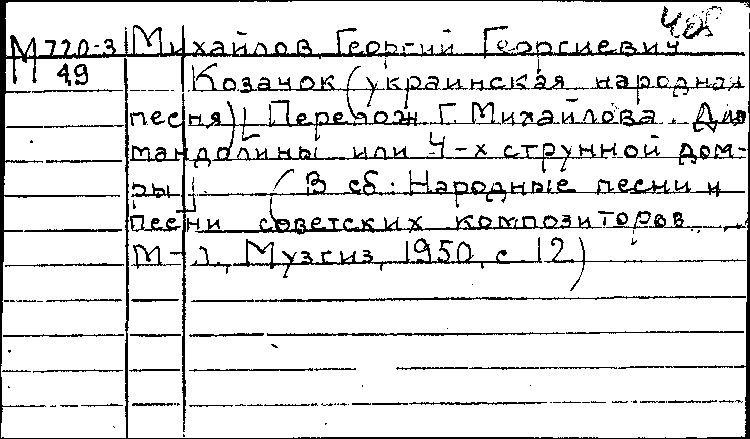 408
М 720-3 Михайлов, Георгий Георгиевич
49 Козачок (украинская народная
песня) [Перелож. Г. Михайлова. Для
мандолины или 4-х струнной дом-
ры] (В сб: Народные песни и
песни советских композиторов.
М-Л, Музгиз, 1950, с 12)